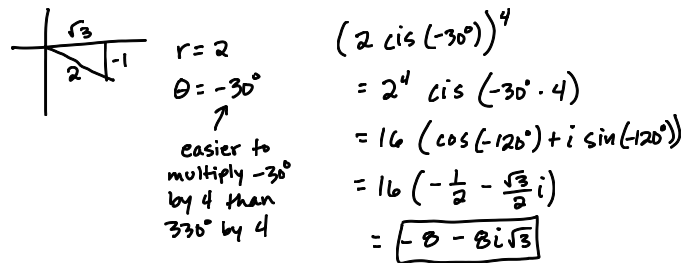 √3
-1
2
r = 2
θ = -30°
easier to
multiply -30°
by 4 than
330° by 4
(2 cis (-30°))⁴
= 2⁴ cis (-30° · 4)
= 16 (cos(-120°) + i sin(-120°))
= 16 (-1/2 - √3/2 i)
= -8 - 8i√3